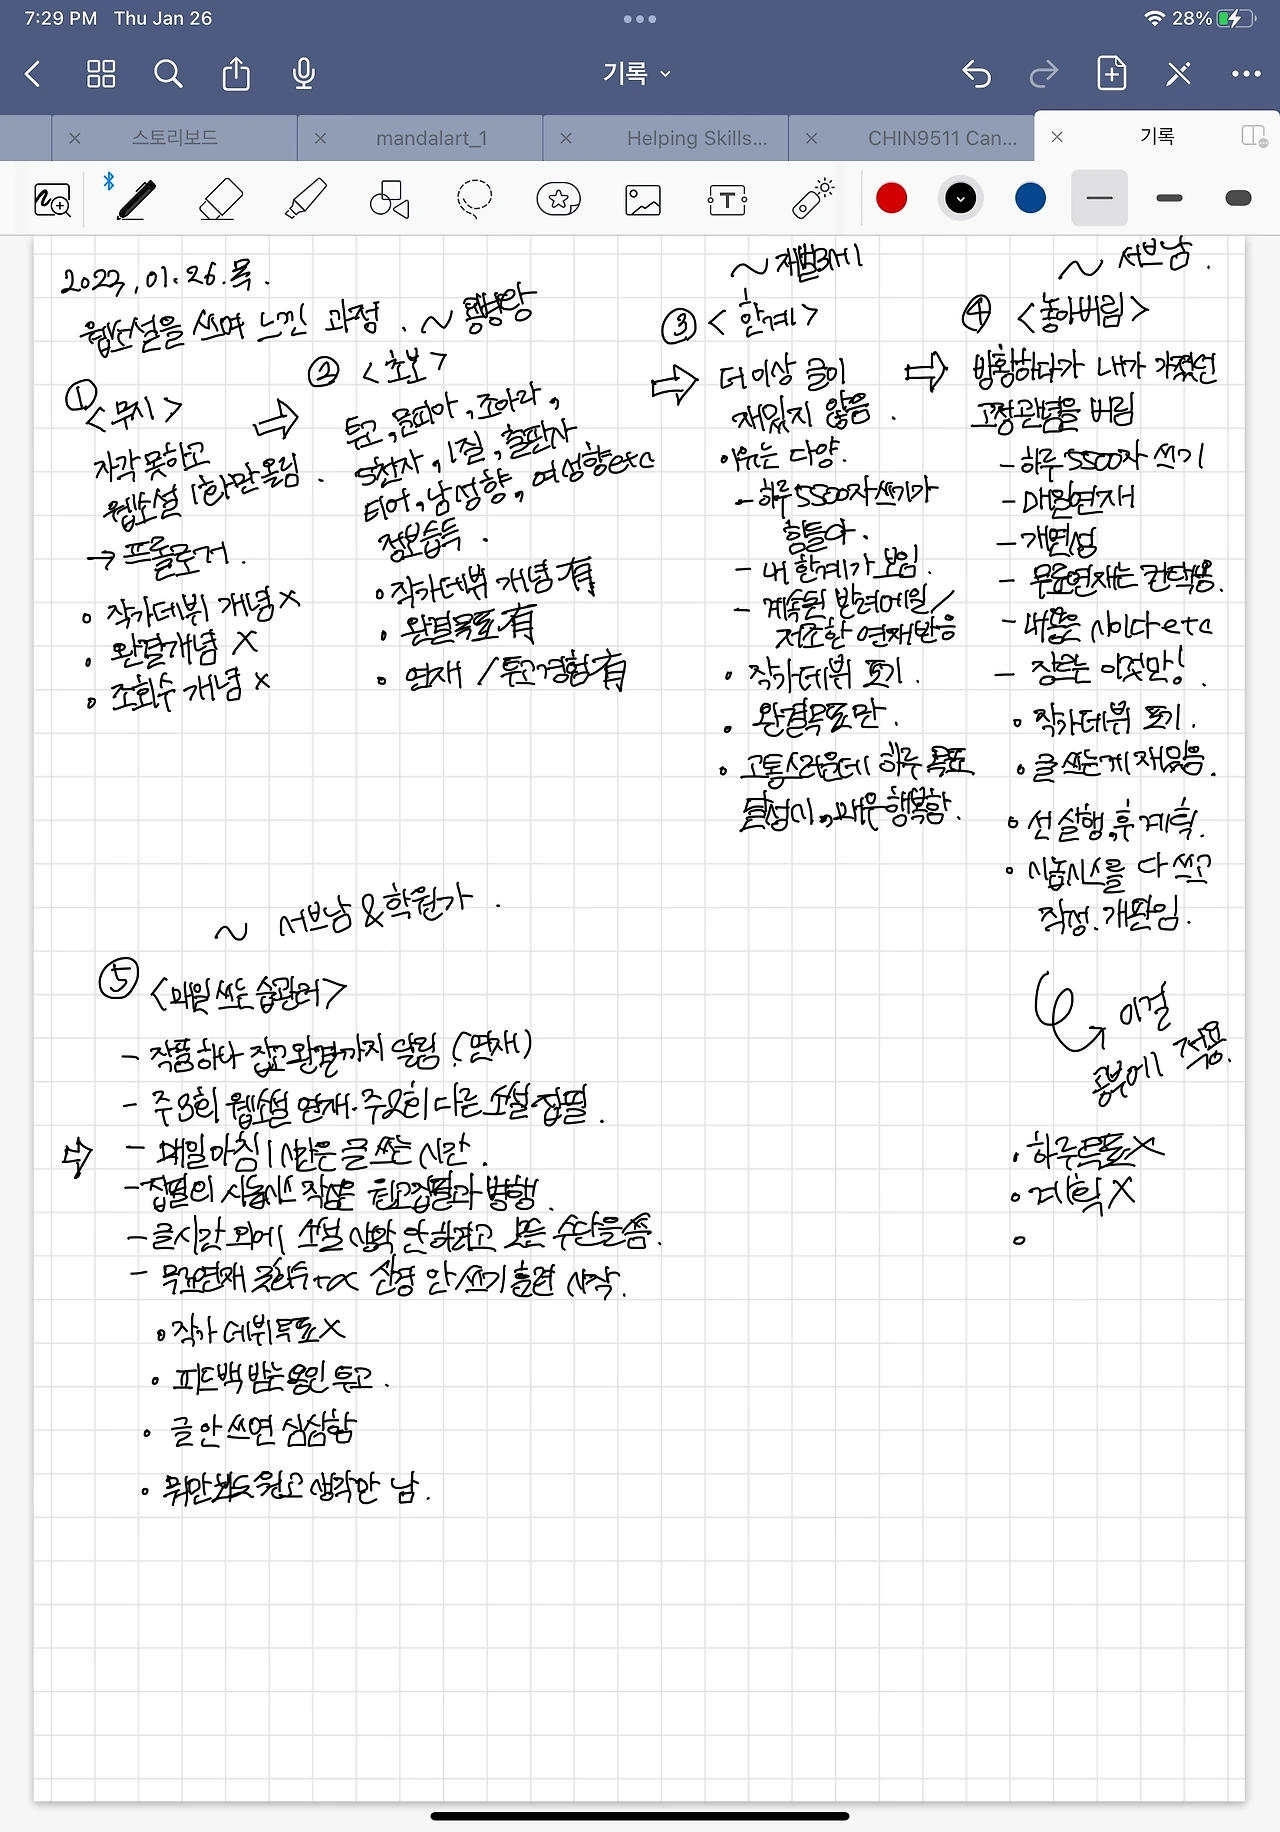 7:29 PM Thu Jan 26
28%
기록
스토리보드
mandalart_1
Helping Skills...
CHIN9511 Can...
기록
2023, 01. 26. 목.
웹소설을 쓰며 느낀 과정.
① <무지>
자각 못하고
웹소설 1화만 올림.
→ 프롤로거.
• 작가데뷔 개념 X
• 완결개념 X
• 조회수 개념 X
~ 용병왕
② <초보>
투고, 문피아, 조아라,
5천자, 1질, 출판사
티어, 남성향, 여성향 etc
정보습득.
• 작가데뷔 개념 有
• 완결목표 有
• 연재 / 투고경험 有
~ 재벌3세
③ <한계>
더 이상 글이
재밌지 않음.
• 이유는 다양.
- 하루 5500자 쓰기가
힘들어.
- 내 한계가 보임.
- 계속된 반려메일 /
저조한 연재반응
• 작가데뷔 포기.
• 완결목표만.
• 고통스러운데 하루 목표
달성시, 매우 행복함.
~ 서브남.
④ <놓아버림>
방황하다가 내가 가졌던
고정관념을 버림
- 하루 5500자 쓰기
- 매일연재
- 개연성
- 무료연재는 컨택용.
- 내용은 사이다 etc
- 장르는 이것만!
• 작가데뷔 포기.
• 글 쓰는게 재밌음.
• 선 실행, 후 계획.
• 시놉시스를 다 쓰고
작성. 개판임.
이걸
공부에 적용.
• 하루목표 X
• 계획 X
•
~ 서브남 & 학원가.
⑤ <매일 쓰는 습관러>
- 작품 하나 잡고 완결까지 달림. (연재)
- 주3회 웹소설 연재. 주2회 다른 소설 집필.
- 매일 아침 1시간은 글 쓰는 시간.
- 집필의 시놉시스 작성은 원고집필과 병행.
- 글시간 외에 소설 생각 안하려고 모든 수단을 씀.
- 무료연재 조회수 etc 신경 안쓰기 훈련 시작.
• 작가 데뷔목표 X
• 피드백 받는용인 투고.
• 글 안 쓰면 심심함
• 뭐만 봐도 원고 생각만 남.